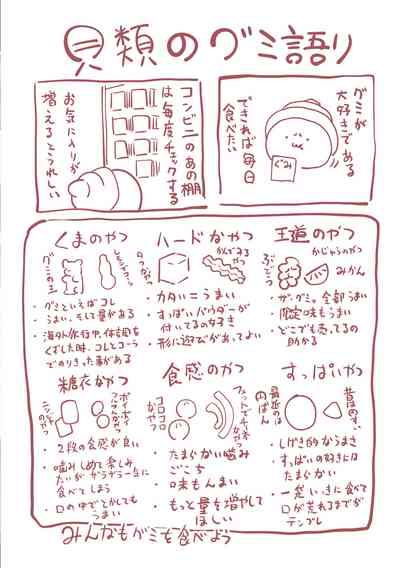 貝類のグミ語り
グミが
大好きである
できれば毎日
食べたい
ぐみ
コンビニのあの棚
は毎度チェックする
お気に入りが
増えるとうれしい
王道のやつ
かじゅうのやつ
ぶどう
みかん
・ザ・グミ。全部うまい
・限定味もうまい
・どこでも売ってるの
助かる
ハードなやつ
かんでみるやつ
・カタい=うまい
・すっぱいパウダーが
付いてるの好き
・形に遊びがあってよい
くまのやつ
グミの王
・グミといえばコレ
・うまい、そして量がある
・海外旅行中、体調を
くずした時、コレとコーラ
でのりきった事がある
すっぱいやつ
最近のは円ばん
・しげき的なうまさ
・すっぱいの好きには
たまらない
・一気にいっきに食べて
口が荒れるまでが
テンプレ
食感のやつ
コロコロなやつ
・たまらない噛み
ごこち
・味もんまい
・もっと量を増やして
ほしい
糖衣なやつ
・2段の食感が良い
・噛みしめて楽しみ
たいがザラザラー立に
食べてしまう
・口の中でとかしても
うまい
みんなもグミを食べよう